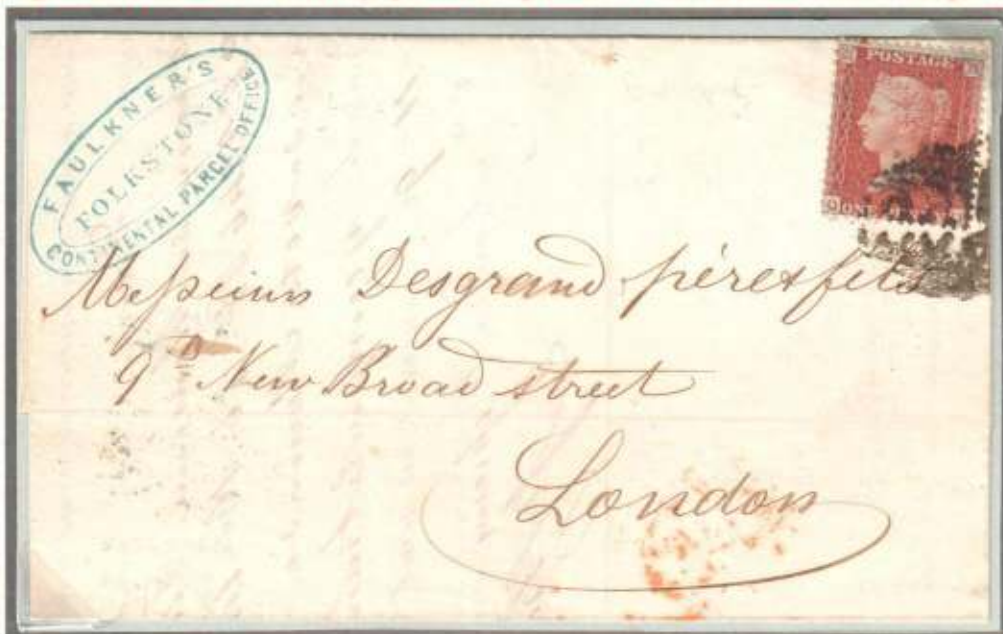 FAULKNER'S
FOLKSTONE
CONTINENTAL PARCEL OFFICE
POSTAGE
ONE PENNY
Messieurs Desgrand père & fils
9 New Broad street
London